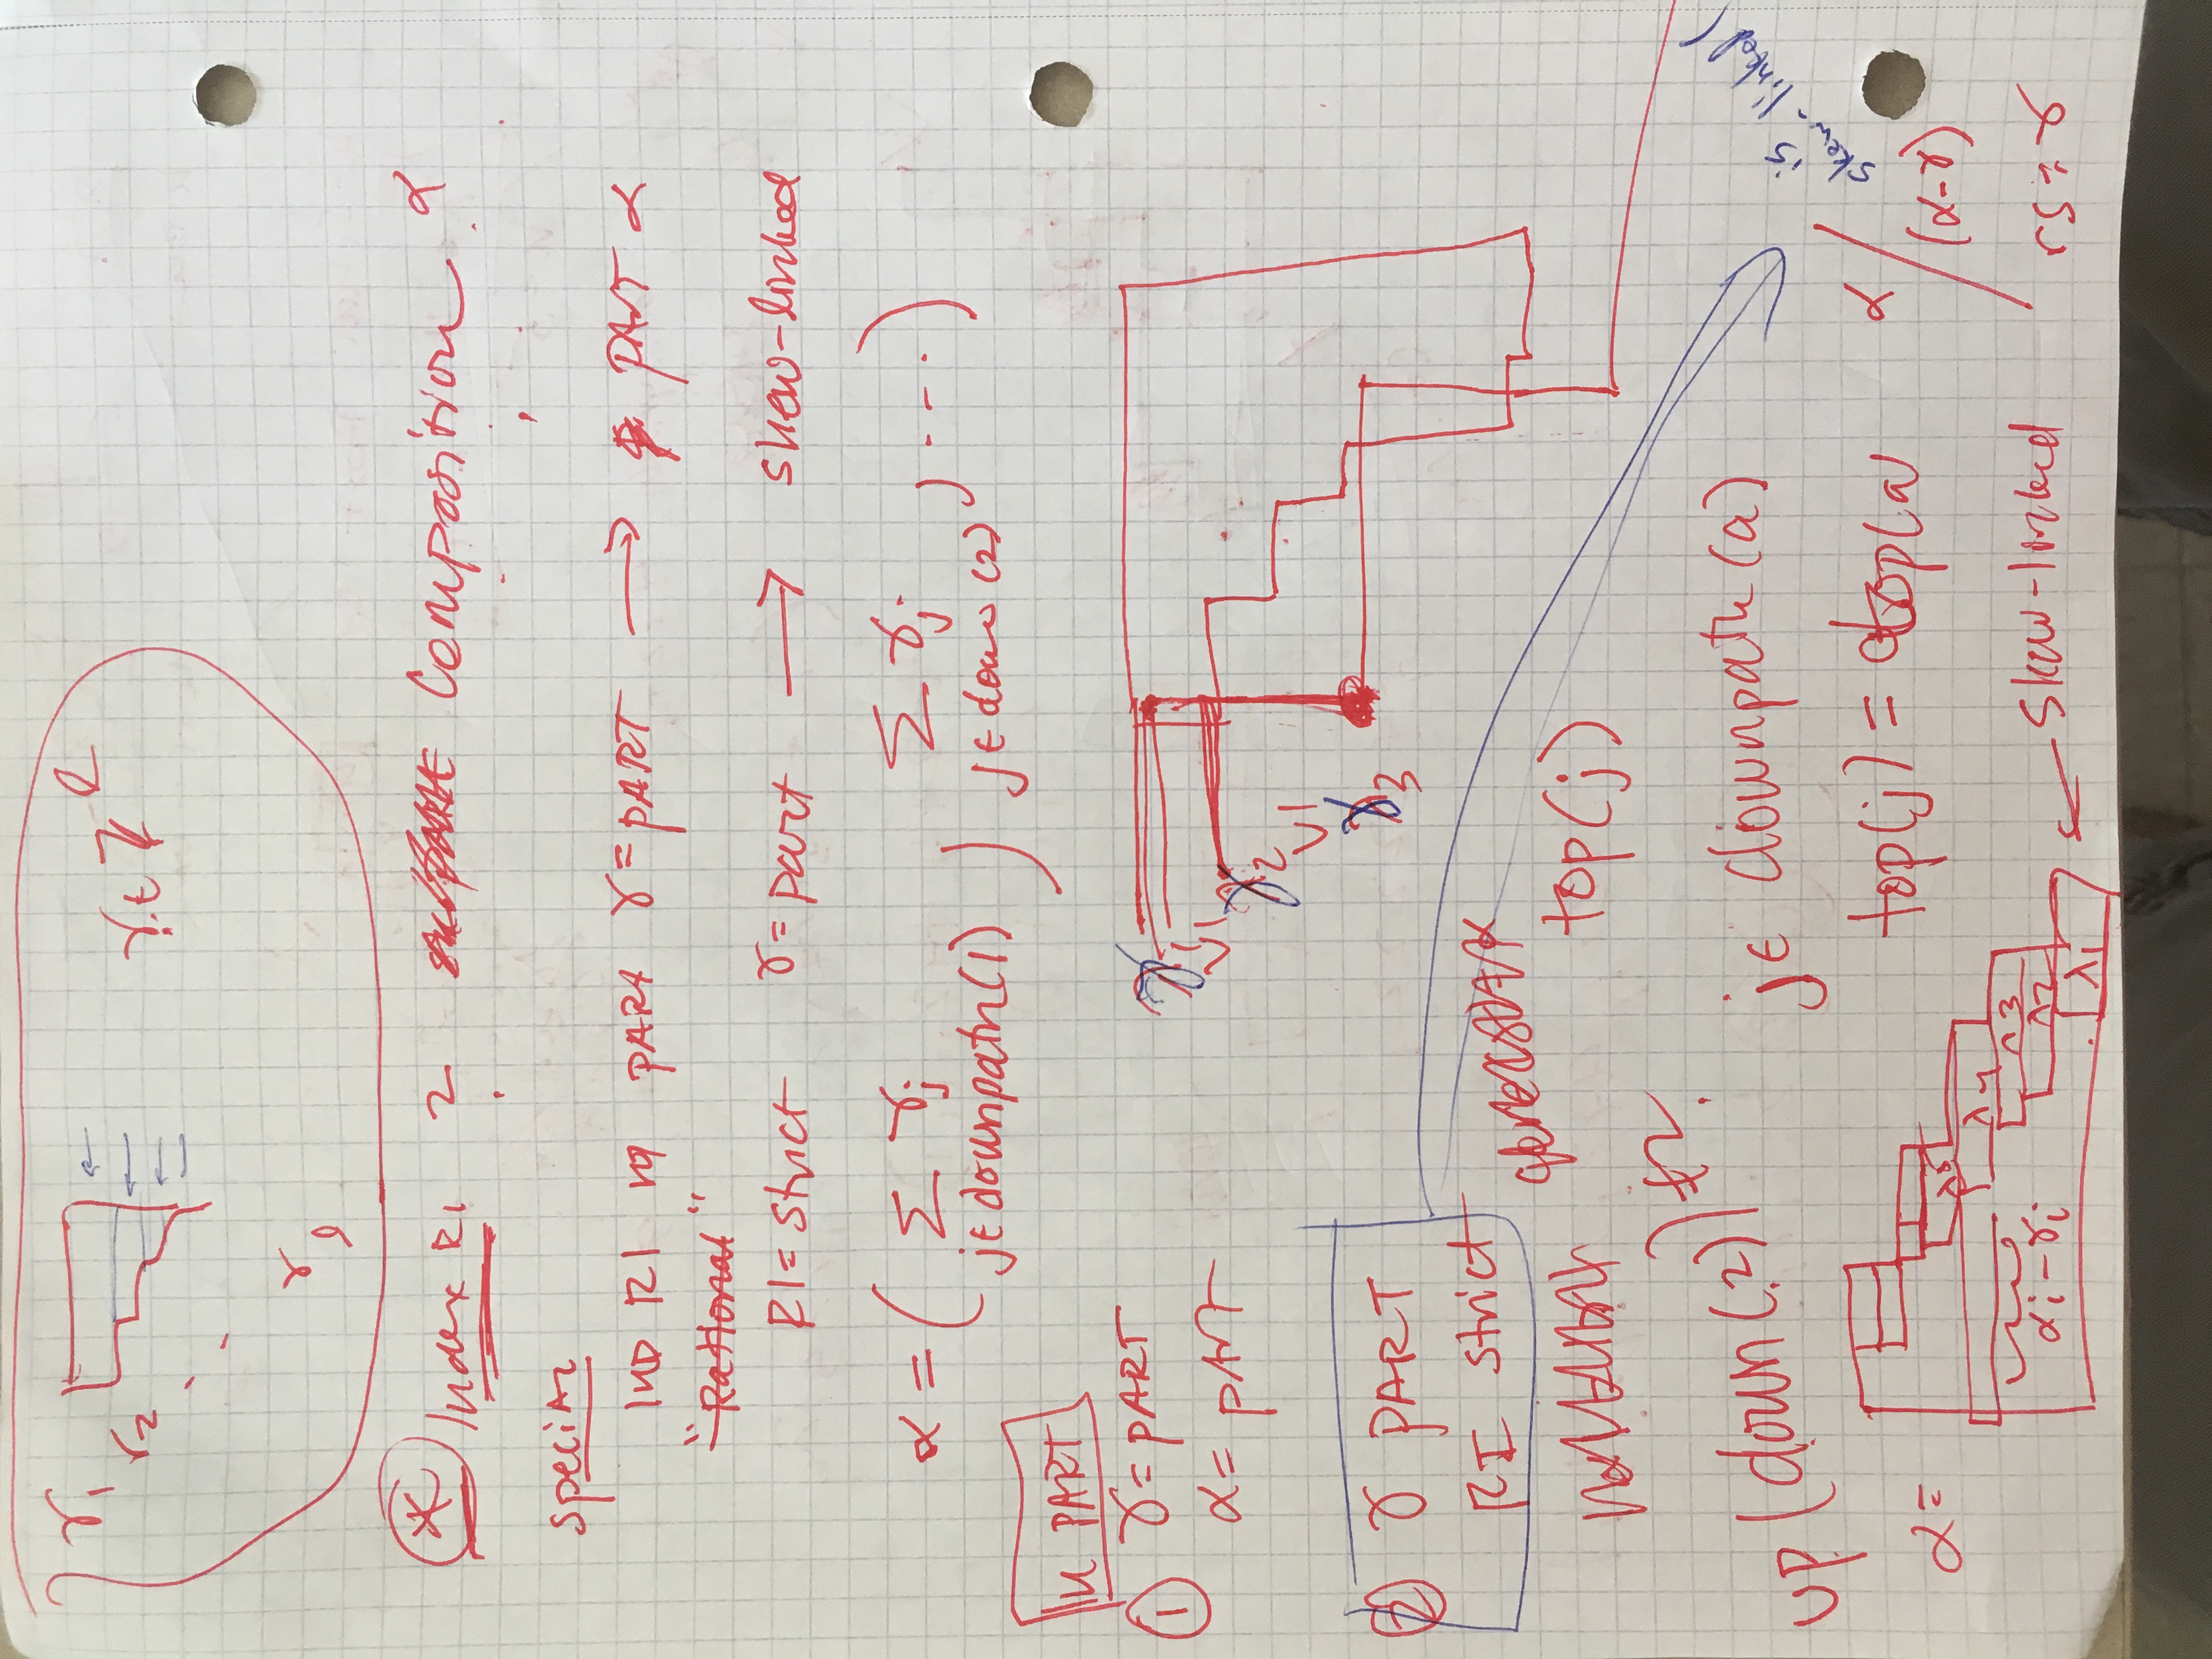 γ₁
γ₂
γ ∈ ℤ^ℓ
γ_ℓ
* Index RI ? Composition α
special
IND RI PART γ = PART → PART α
"Rational"
RI = strict γ = part → skew-linked
α = ( Σ γⱼ , Σ γⱼ , ... )
j∈downpath(1) j∈down(2)
In PART
① γ = PART
α = part
γ₁
∨|
γ₂
∨|
γ₃
② γ PART
RI strict
top(j)
up(down(2)) ≠ 2.
j∈ downpath(a)
top(j) = top(a
α =
λ5
λ4
λ3
λ2
λ1
αᵢ-γᵢ
← skew-linked
α/(α-γ)
is
skew-linked
rs = γ